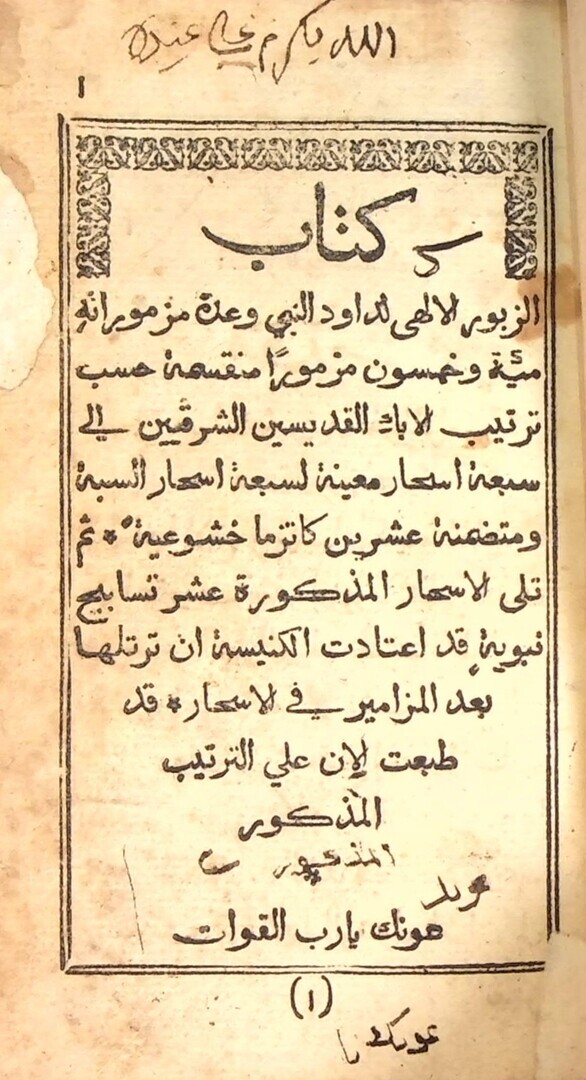 الله يكرم علي عبيده
١
كتاب
الزبور الالهى لداود النبي وعدة مزموراته
ميئة وخمسون مزمورًا منقسمة حسب
ترتيب الاباء القديسين الشرقيين الي
سبعة اسحار معينة لسبعة اسحار السبة
ومتضمنة عشرين كاتزما خشوعية * ثم
تلى الاسحار المذكورة عشر تسابيح
نبوية قد اعتادت الكنيسة ان ترتلها
بعد المزامير في الاسحار * قد
طبعت الان علي الترتيب
المذكور
المذكور
عونك يارب القوات
(١)
عونك يا